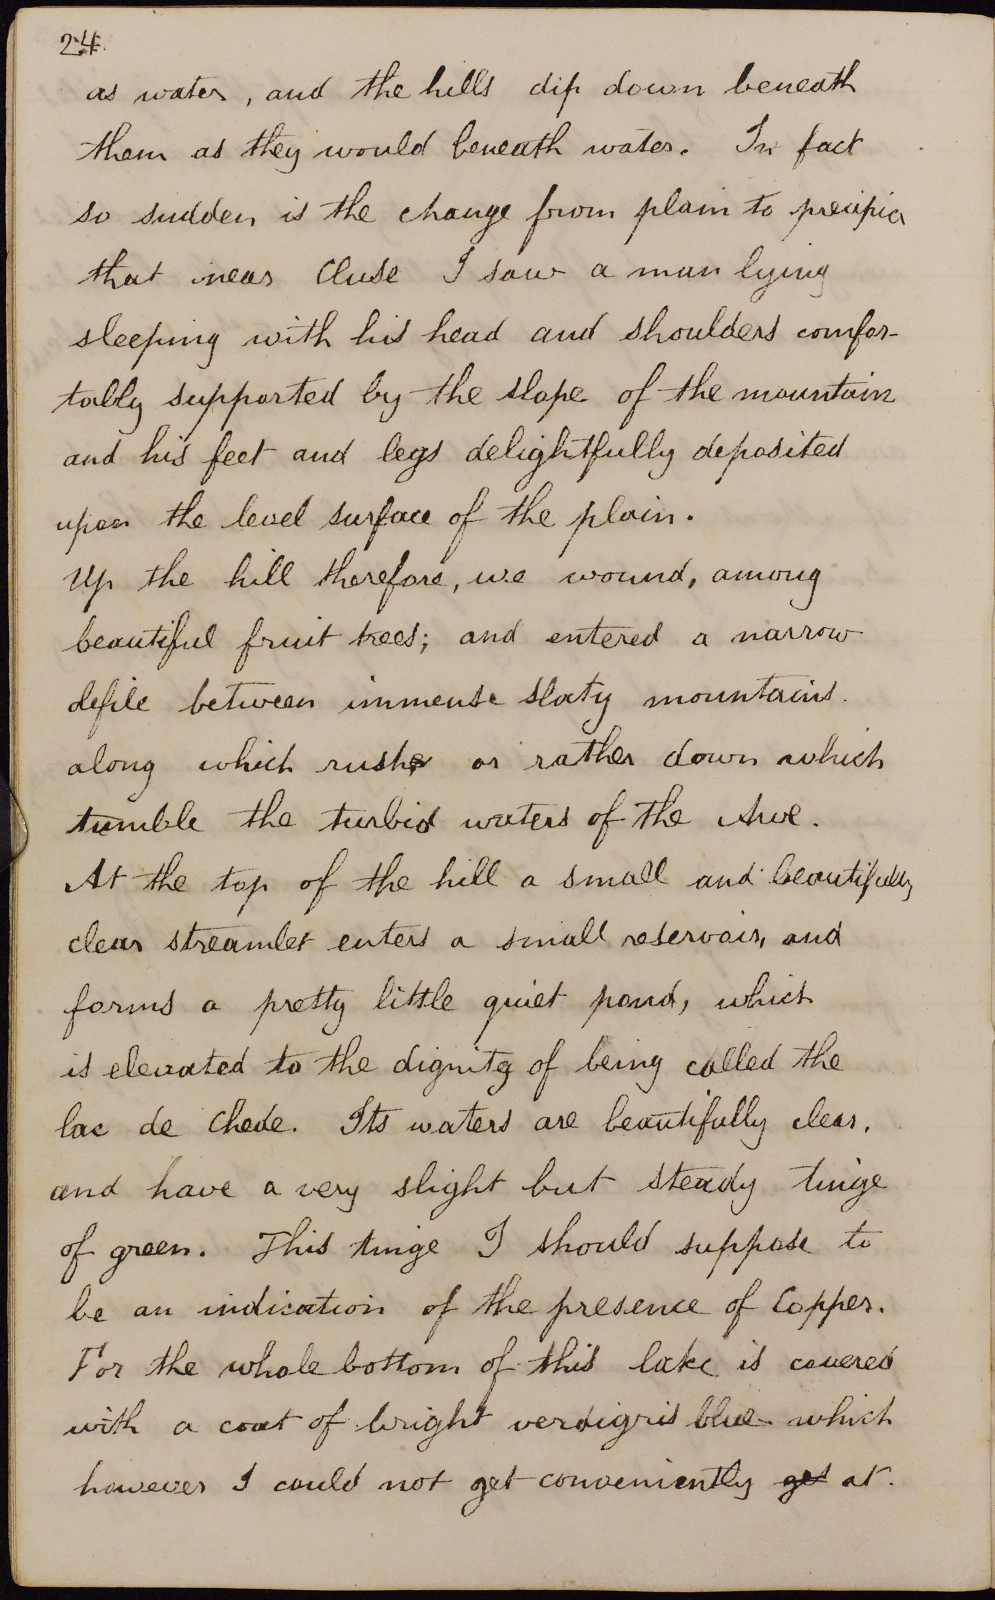 24.
as water, and the hills dip down beneath
them as they would beneath water. In fact
so sudden is the change from plain to precipice
that near Cluse I saw a man lying
sleeping with his head and shoulders comfor-
tably supported by the slope of the mountain
and his feet and legs delightfully deposited
upon the level surface of the plain.
Up the hill therefore, we wound, among
beautiful fruit trees; and entered a narrow
defile between immense slaty mountains.
along which rush or rather down which
tumble the turbid waters of the Arve.
At the top of the hill a small and beautifully
clear streamlet enters a small reservoir, and
forms a pretty little quiet pond, which
is elevated to the dignity of being called the
lac de Chede. Its waters are beautifully clear,
and have a very slight but steady tinge
of green. This tinge I should suppose to
be an indication of the presence of Copper.
For the whole bottom of this lake is covered
with a coat of bright verdigris blue which
however I could not get conveniently get at.